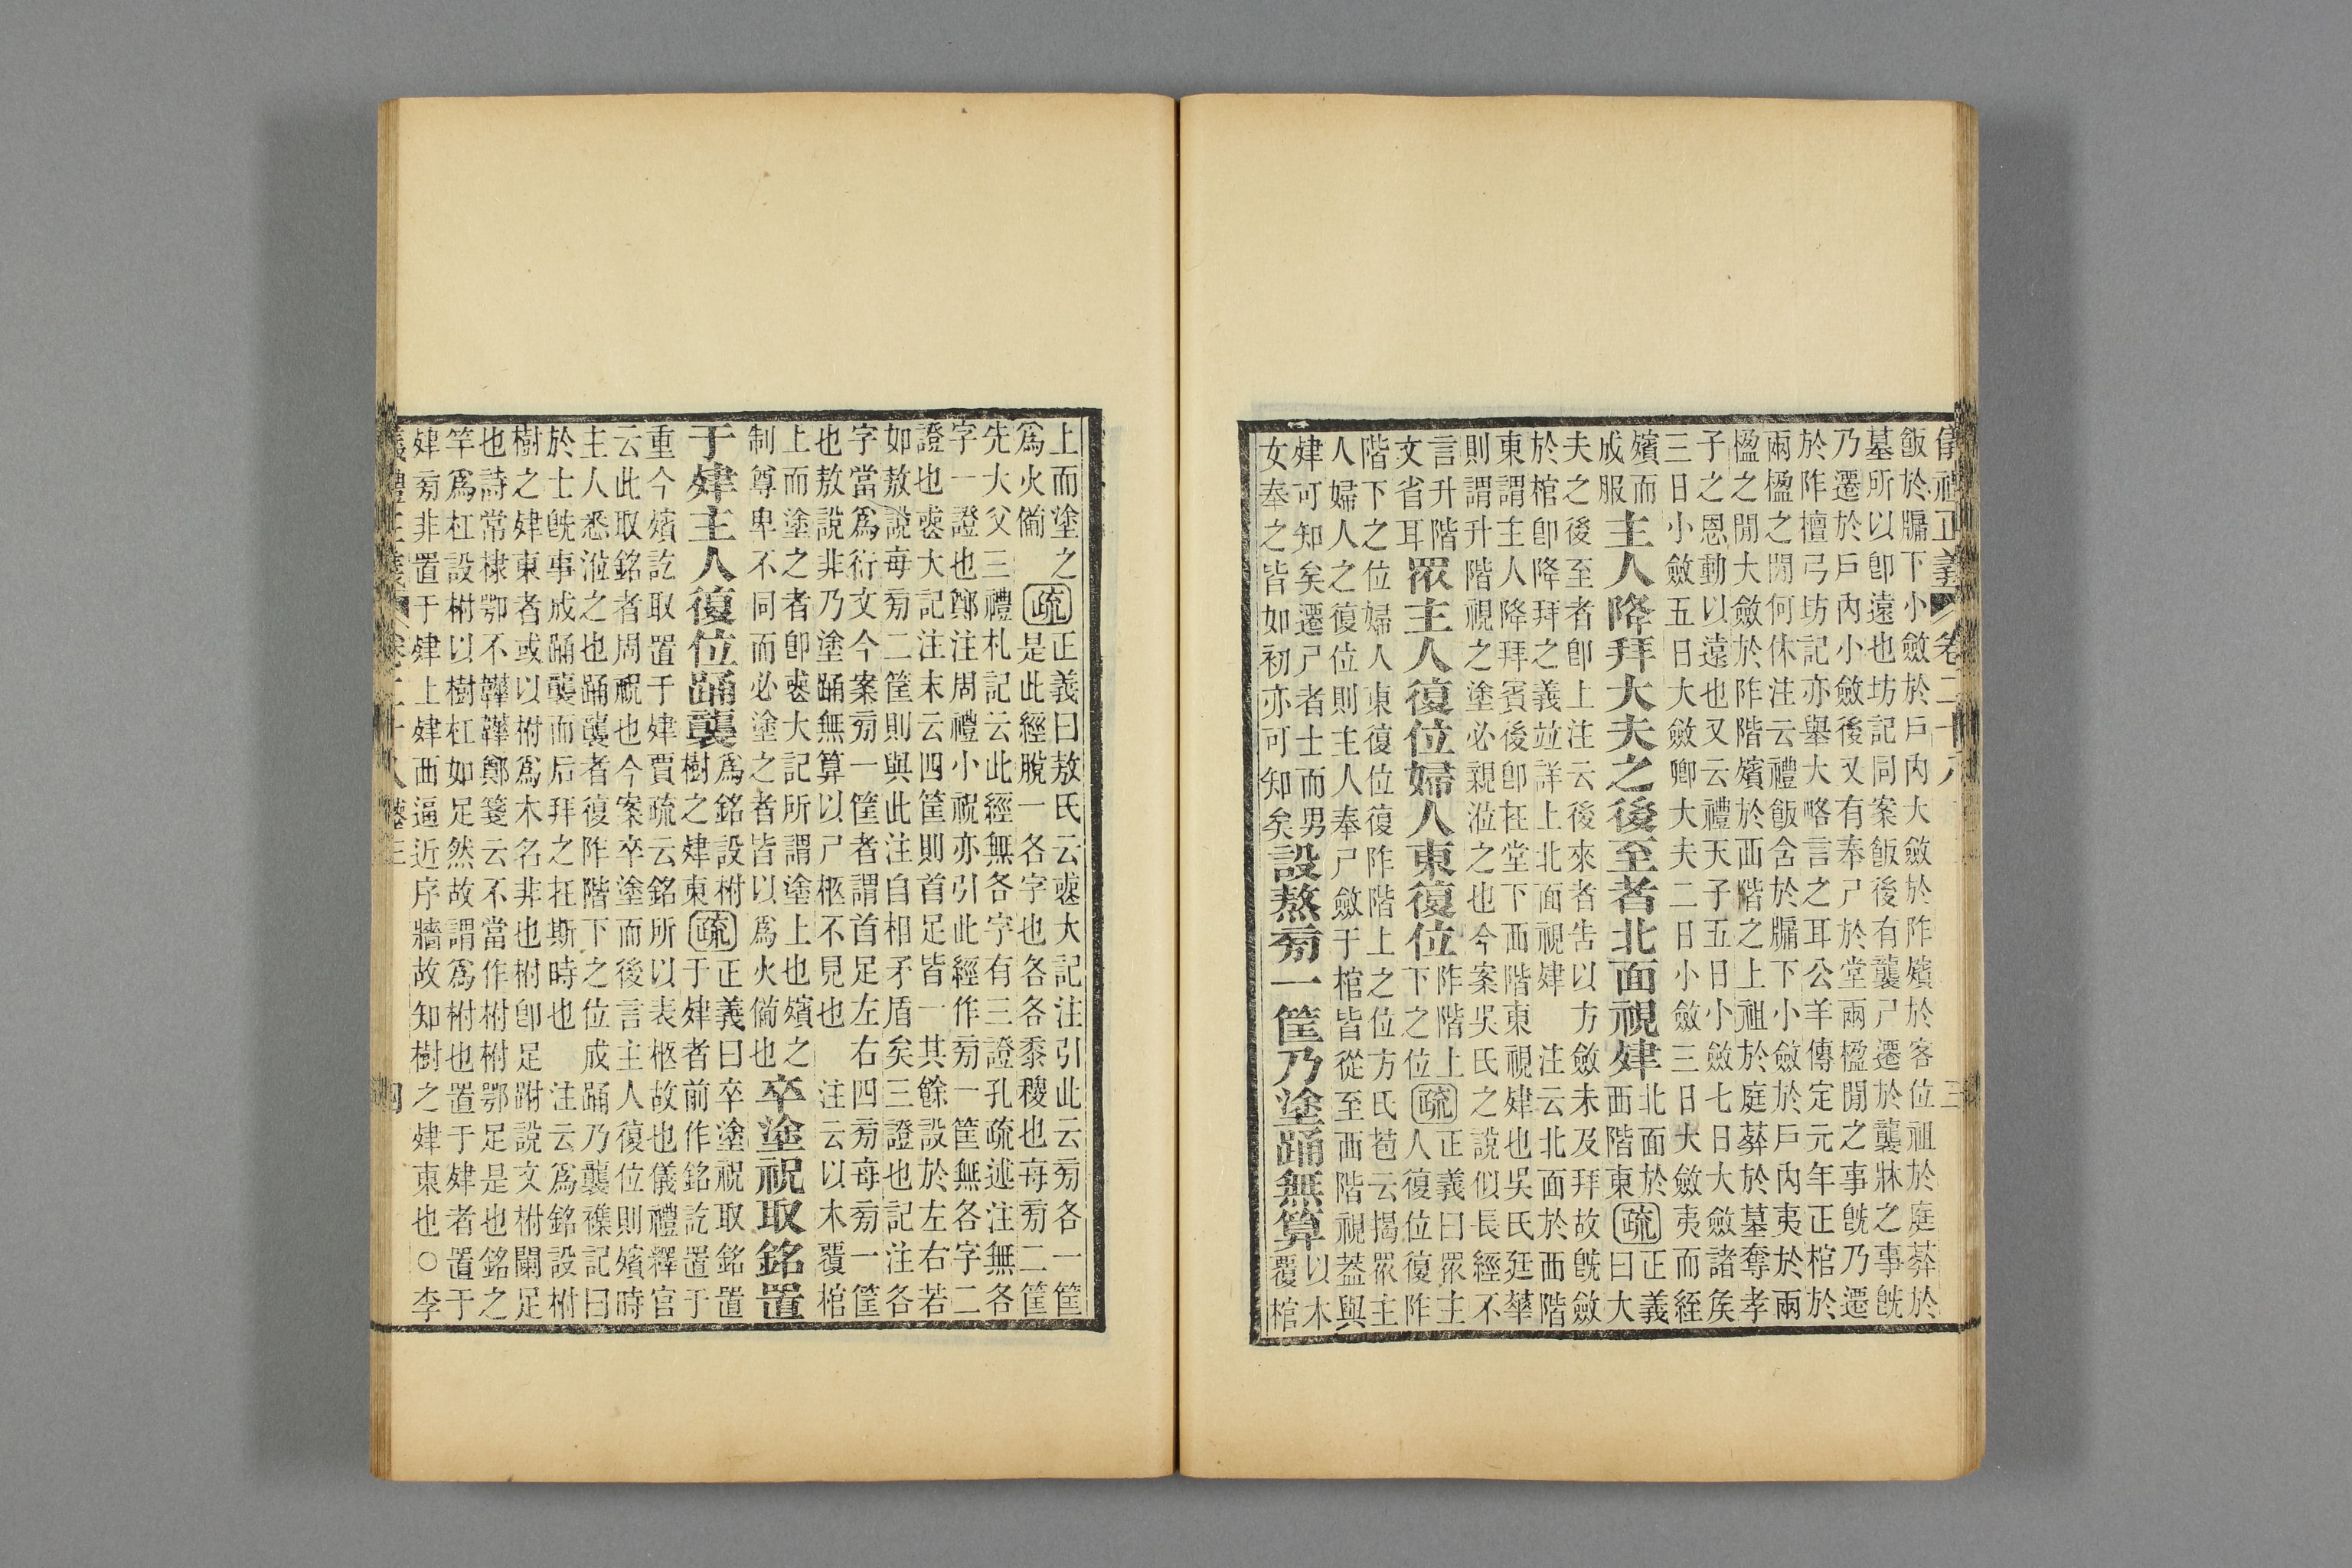 儀禮正義 卷二十八 三
飯於牖下小斂於戶內大斂於阼殯於客位祖於庭葬於
墓所以卽遠也坊記同案飯後有襲尸遷於襲牀之事旣
乃遷於戶內小斂後又有奉尸於堂兩楹閒之事旣乃遷
於阼檀弓坊記亦舉大略言之耳公羊傳定元年正棺於
兩楹之閒何休注云禮飯含於牖下小斂於戶內夷於兩
楹之閒大斂於阼階殯於西階之上祖於庭葬於墓奪孝
子之恩動以遠也又云禮天子五日小斂七日大斂諸矦
三日小斂五日大斂卿大夫二日小斂三日大斂夷而絰
殯而成服 主人降拜大夫之後至者北面視肂 北面於西階東 疏 正義曰大
夫之後至者卽上注云後來者吿以方斂未及拜故旣斂
於棺卽降拜之義竝詳上北面視肂 注云北面於西階
東謂主人降拜賓後卽在堂下西階東視肂也吳氏廷華
則謂升階視之塗必親涖之也今案吳氏之說似長經不
言升階文省耳 眾主人復位婦人東復位 阼階上下之位 疏 正義曰眾主人復位復阼
階下之位婦人東復位復阼階上之位方氏苞云揭眾主
人婦人之復位則主人奉尸斂于棺皆從至西階視蓋與
肂可知矣遷尸者士而男女奉之皆如初亦可知矣 設熬旁一筐乃塗踊無算 以木覆棺
上而塗之爲火備 疏 正義曰敖氏云喪大記注引此云旁各一筐是此經脫一各字也各各黍稷也每旁二筐
先大父三禮札記云此經無各字有三證孔疏述注無各
字一證也鄭注周禮小祝亦引此經作旁一筐無各字二
證也喪大記注末云四筐則首足皆一其餘設於左右若
如敖說每旁二筐則與此注自相矛盾矣三證也記注各
字當爲衍文今案旁一筐者謂首足左右四旁每旁一筐
也敖說非乃塗踊無算以尸柩不見也 注云以木覆棺
上而塗之者卽喪大記所謂塗上也殯之制尊卑不同而必塗之者皆以爲火備也 卒塗祝取銘置
于肂主人復位踊襲 爲銘設柎樹之肂東 疏 正義曰卒塗祝取銘置于肂者前作銘訖置于
重今殯訖取置于肂賈疏云銘所以表柩故也儀禮釋官
云此取銘者周祝也今案卒塗而後言主人復位則殯時
主人悉涖之也踊襲者復阼階下之位成踊乃襲襍記曰
於士旣事成踊襲而后拜之在斯時也 注云爲銘設柎
樹之肂東者或以柎爲木名非也柎卽足跗說文柎闌足
也詩常棣鄂不韡韡鄭箋云不當作柎柎鄂足是也銘之
竿爲杠設柎以樹杠如足然故謂爲柎也置于肂者置于
肂旁非置于肂上肂西逼近序牆故知樹之肂東也○李